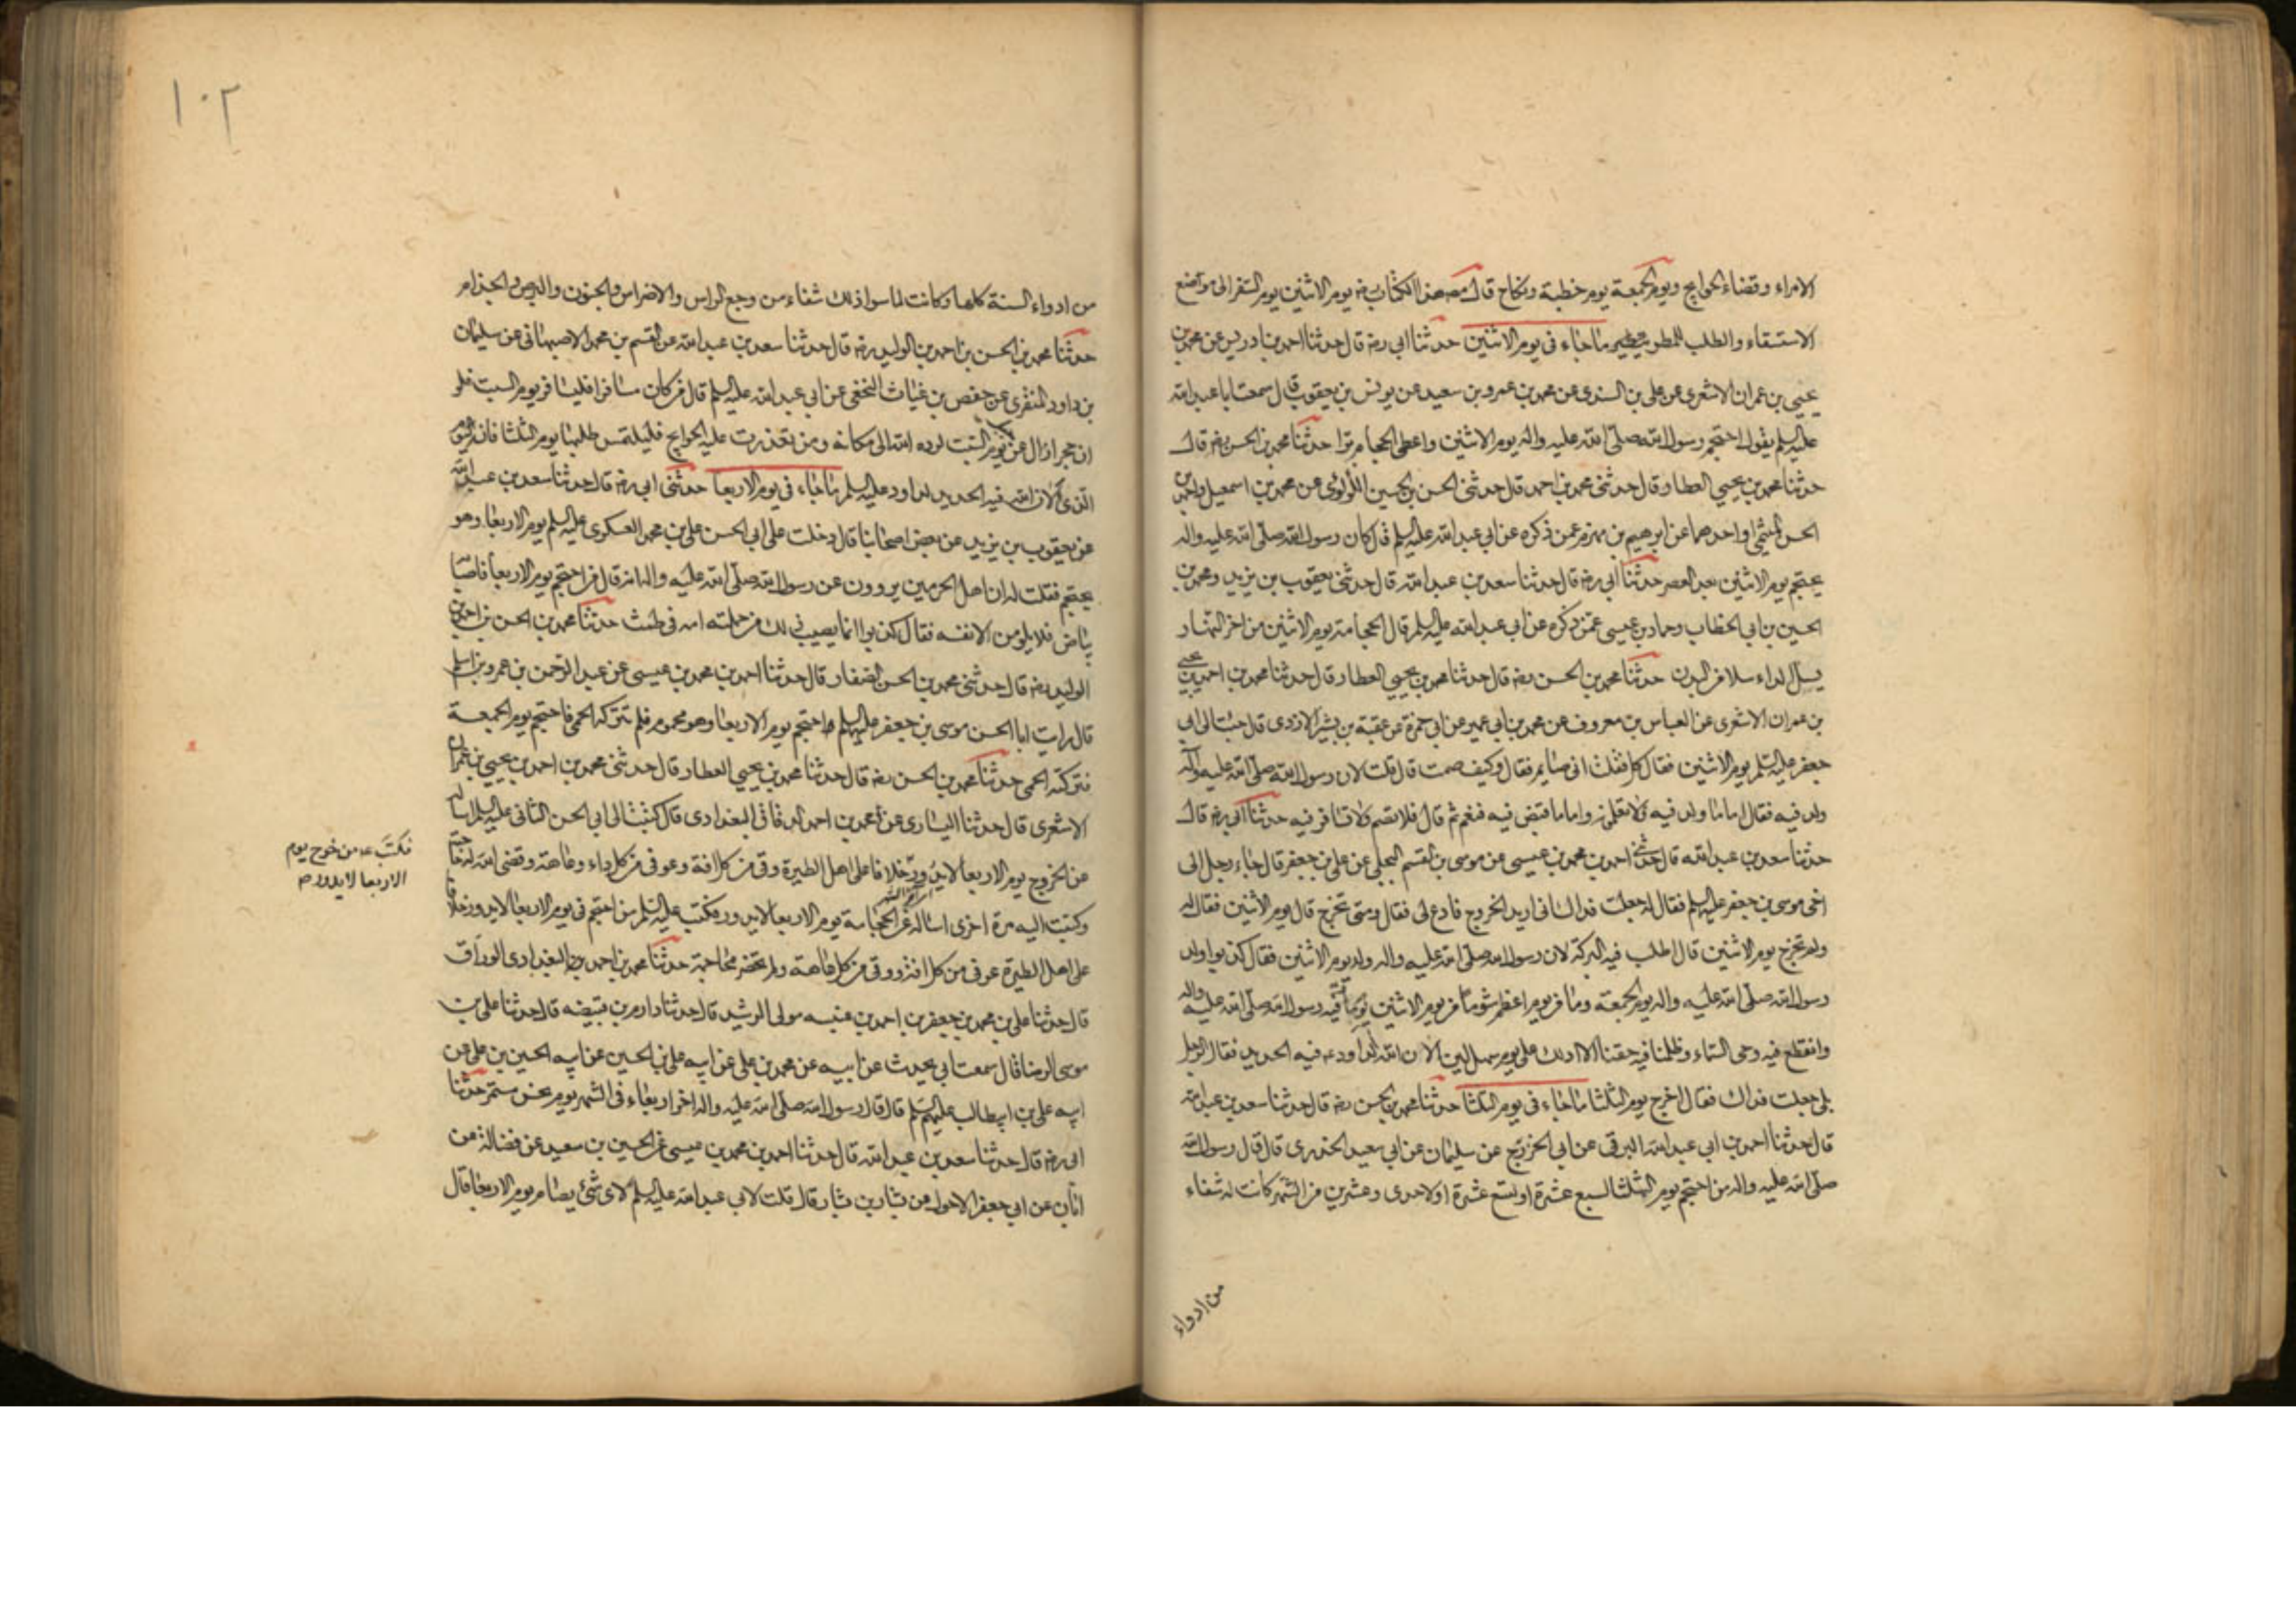 الامراء وقضاء الحوايج ويوم الجمعة يوم خطبة ونكاح قال مصنف هذا الكتاب رضه يوم الاثنين يوم السفر الى موضع
الاستسقاء والطلب للمطر ما جاء في يوم الاثنين حدثنا ابي رضه قال حدثنا احمد بن ادريس عن محمد بن
يحيى بن عمران الاشعرى عن على بن السندى عن محمد بن عمرو بن سعيد عن يونس بن يعقوب قال سمعت ابا عبد الله
عليه السلم يقول احتجم رسول الله صلى الله عليه واله يوم الاثنين واعطى الحجام برّا حدثنا محمد بن الحسن رضه قال
حدثنا محمد بن يحيى العطار قال حدثنى محمد بن احمد قال حدثنى الحسن بن الحسين اللؤلؤى عن محمد بن اسمعيل واحمد بن
الحسن الميثمى او احدهما عن ابرهيم بن مهزم عمن ذكره عن ابي عبد الله عليه السلم قال كان رسول الله صلى الله عليه واله
يحتجم يوم الاثنين بعد العصر حدثنا ابي رضه قال حدثنا سعد بن عبد الله قال حدثنى يعقوب بن يزيد ومحمد بن
الحسين بن ابي الخطاب وحماد بن عيسى عمن ذكره عن ابي عبد الله عليه السلم قال الحجامة يوم الاثنين من اخر النهار
يسل الداء سلا من البدن حدثنا محمد بن الحسن رضه قال حدثنا محمد بن يحيى العطار قال حدثنا محمد بن احمد بن يحيى
بن عمران الاشعرى عن العباس بن معروف عن محمد بن ابي عمير عن ابي حمزة عن عقبة بن بشير الازدى قال جئت الى ابي
جعفر عليه السلم يوم الاثنين فقال كل فقلت انى صايم فقال وكيف صمت قال قلت لان رسول الله صلى الله عليه واله
ولد فيه فقال اما ما ولد فيه فلا تعلمون واما ما قبض فيه فنعم ثم قال فلا تصم ولا تسافر فيه حدثنا ابي رضه قال
حدثنا سعد بن عبد الله قال حدثنى احمد بن محمد بن عيسى عن موسى بن القسم البجلى عن على بن جعفر قال جاء رجل الى
اخى موسى بن جعفر عليه السلم فقال له جعلت فداك انى اريد الخروج فادع لى فقال ومتى تخرج قال يوم الاثنين فقال له
ولم تخرج يوم الاثنين قال اطلب فيه البركة لان رسول الله صلى الله عليه واله ولد يوم الاثنين فقال كذبوا ولد
رسول الله صلى الله عليه واله يوم الجمعة وما من يوم اعظم شوما من يوم الاثنين يوم مات فيه رسول الله صلى الله عليه واله
وانقطع فيه وحى السماء وظلمنا فيه حقنا الا ادلك على يوم سهل لين الان الله لداود عم فيه الحديد فقال الرجل
بلى جعلت فداك فقال اخرج يوم الثلثا ما جاء في يوم الثلثا حدثنا محمد بن الحسن رضه قال حدثنا سعد بن عبد الله
قال حدثنا احمد بن ابي عبد الله البرقى عن ابي الخزرج عن سليمان عن ابي سعيد الخدرى قال قال رسول الله
صلى الله عليه واله من احتجم يوم الثلثا لسبع عشرة او تسع عشرة او لاحدى وعشرين من الشهر كانت له شفاء
من ادواء
١٠٢
من ادواء السنة كلها وكانت لما سوا ذلك شفاء من وجع الراس والاضراس والجنون والبرص والجذام
حدثنا محمد بن الحسن بن احمد بن الوليد رضه قال حدثنا سعد بن عبد الله عن القسم بن محمد الاصبهانى عن سليمان
بن داود المنقرى عن حفص بن غياث النخعى عن ابي عبد الله عليه السلم قال من كان مسافرا فليسافر يوم السبت فلو
ان حجرا زال عن جبل يوم السبت لرده الله الى مكانه ومن تعذرت عليه الحوايج فليلتمس طلبها يوم الثلثا فانه اليوم
الذى الان الله فيه الحديد لداود عليه السلم ما جاء في يوم الاربعا حدثنى ابي رضه قال حدثنا سعد بن عبد الله
عن يعقوب بن يزيد عن بعض اصحابنا قال دخلت على ابي الحسن على بن محمد العسكرى عليه السلم يوم الاربعا وهو
يحتجم فقلت له ان اهل الحرمين يروون عن رسول الله صلى الله عليه واله انه قال من احتجم يوم الاربعا فاصابه
بياض فلا يلومن الا نفسه فقال كذبوا انما يصيب ذلك من حملته امه في طمث حدثنا محمد بن الحسن بن احمد بن
الوليد رضه قال حدثنى محمد بن الحسن الصفار قال حدثنا احمد بن محمد بن عيسى عن عبد الرحمن بن عمرو بن اسلم
قال رايت ابا الحسن موسى بن جعفر عليه السلم احتجم يوم الاربعا وهو محموم فلم تتركه الحمى فاحتجم يوم الجمعة
فتركته الحمى حدثنا محمد بن الحسن رضه قال حدثنا محمد بن يحيى العطار قال حدثنى محمد بن احمد بن يحيى بن عمران
الاشعرى قال حدثنا السيارى عن محمد بن احمد الدقاق البغدادى قال كتبت الى ابي الحسن الثانى عليه السلم اساله
عن الخروج يوم الاربعا لا يدور خلافا على اهل الطيرة وقى من كل افة وعوفى من كل داء وعاهة وقضى الله له حاجته
فكتب عم من خرج يوم
الاربعا لا يدور صح
وكتبت اليه مرة اخرى اساله عن الحجامة يوم الاربعا لا يدور فكتب عليه السلم من احتجم في يوم الاربعا لا يدور خلافا
على اهل الطيرة عوفى من كل افة ووقى من كل عاهة ولم تخضر محاجمه حدثنا محمد بن احمد البغدادى الوراق
قال حدثنا على بن محمد بن جعفر بن احمد بن عنبسه مولى الرشيد قال حدثنا دارم بن قبيصه قال حدثنا على بن
موسى الرضا قال سمعت ابي يحدث عن ابيه عن محمد بن على عن ابيه على بن الحسين عن ابيه الحسين بن على عن
ابيه على بن ابيطالب عليهم السلم قال قال رسول الله صلى الله عليه واله اخر اربعاء فى الشهر يوم نحس مستمر حدثنا
ابي رضه قال حدثنا سعد بن عبد الله قال حدثنا احمد بن محمد بن عيسى عن الحسين بن سعيد عن فضالة عن
ابان عن ابي جعفر الاحول عن بشار بن بشار قال قلت لابي عبد الله عليه السلم لاى شئ يصام يوم الاربعا قال